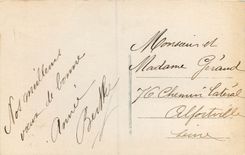 Nos meilleurs
vœux de bonne
année
Berthe
Monsieur et
Madame Géraud
76 Chemin Latéral
Alfortville
Seine